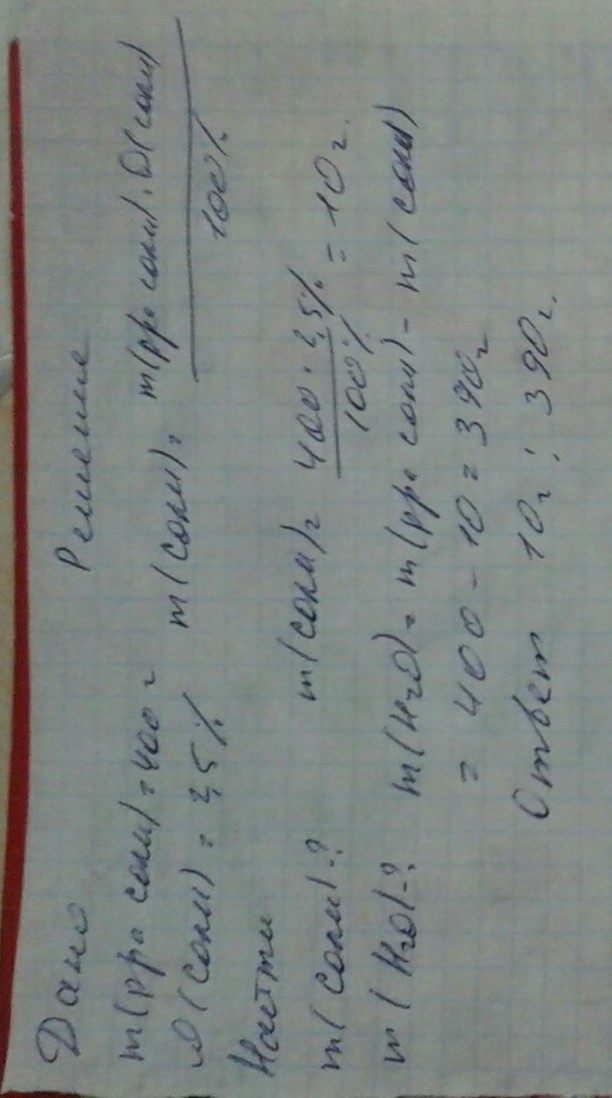 Дано
m(рра соли) = 400 г
ω(соли) = 2,5%
Найти
m(соли)-?
m(H2O)-?
Решение
m(соли) = m(рра соли) · ω(соли)
100%
m(соли) = 400 · 2,5% = 10 г.
100%
m(H2O) = m(рра соли) - m(соли)
= 400 - 10 = 390 г
Ответ 10 г ; 390 г.